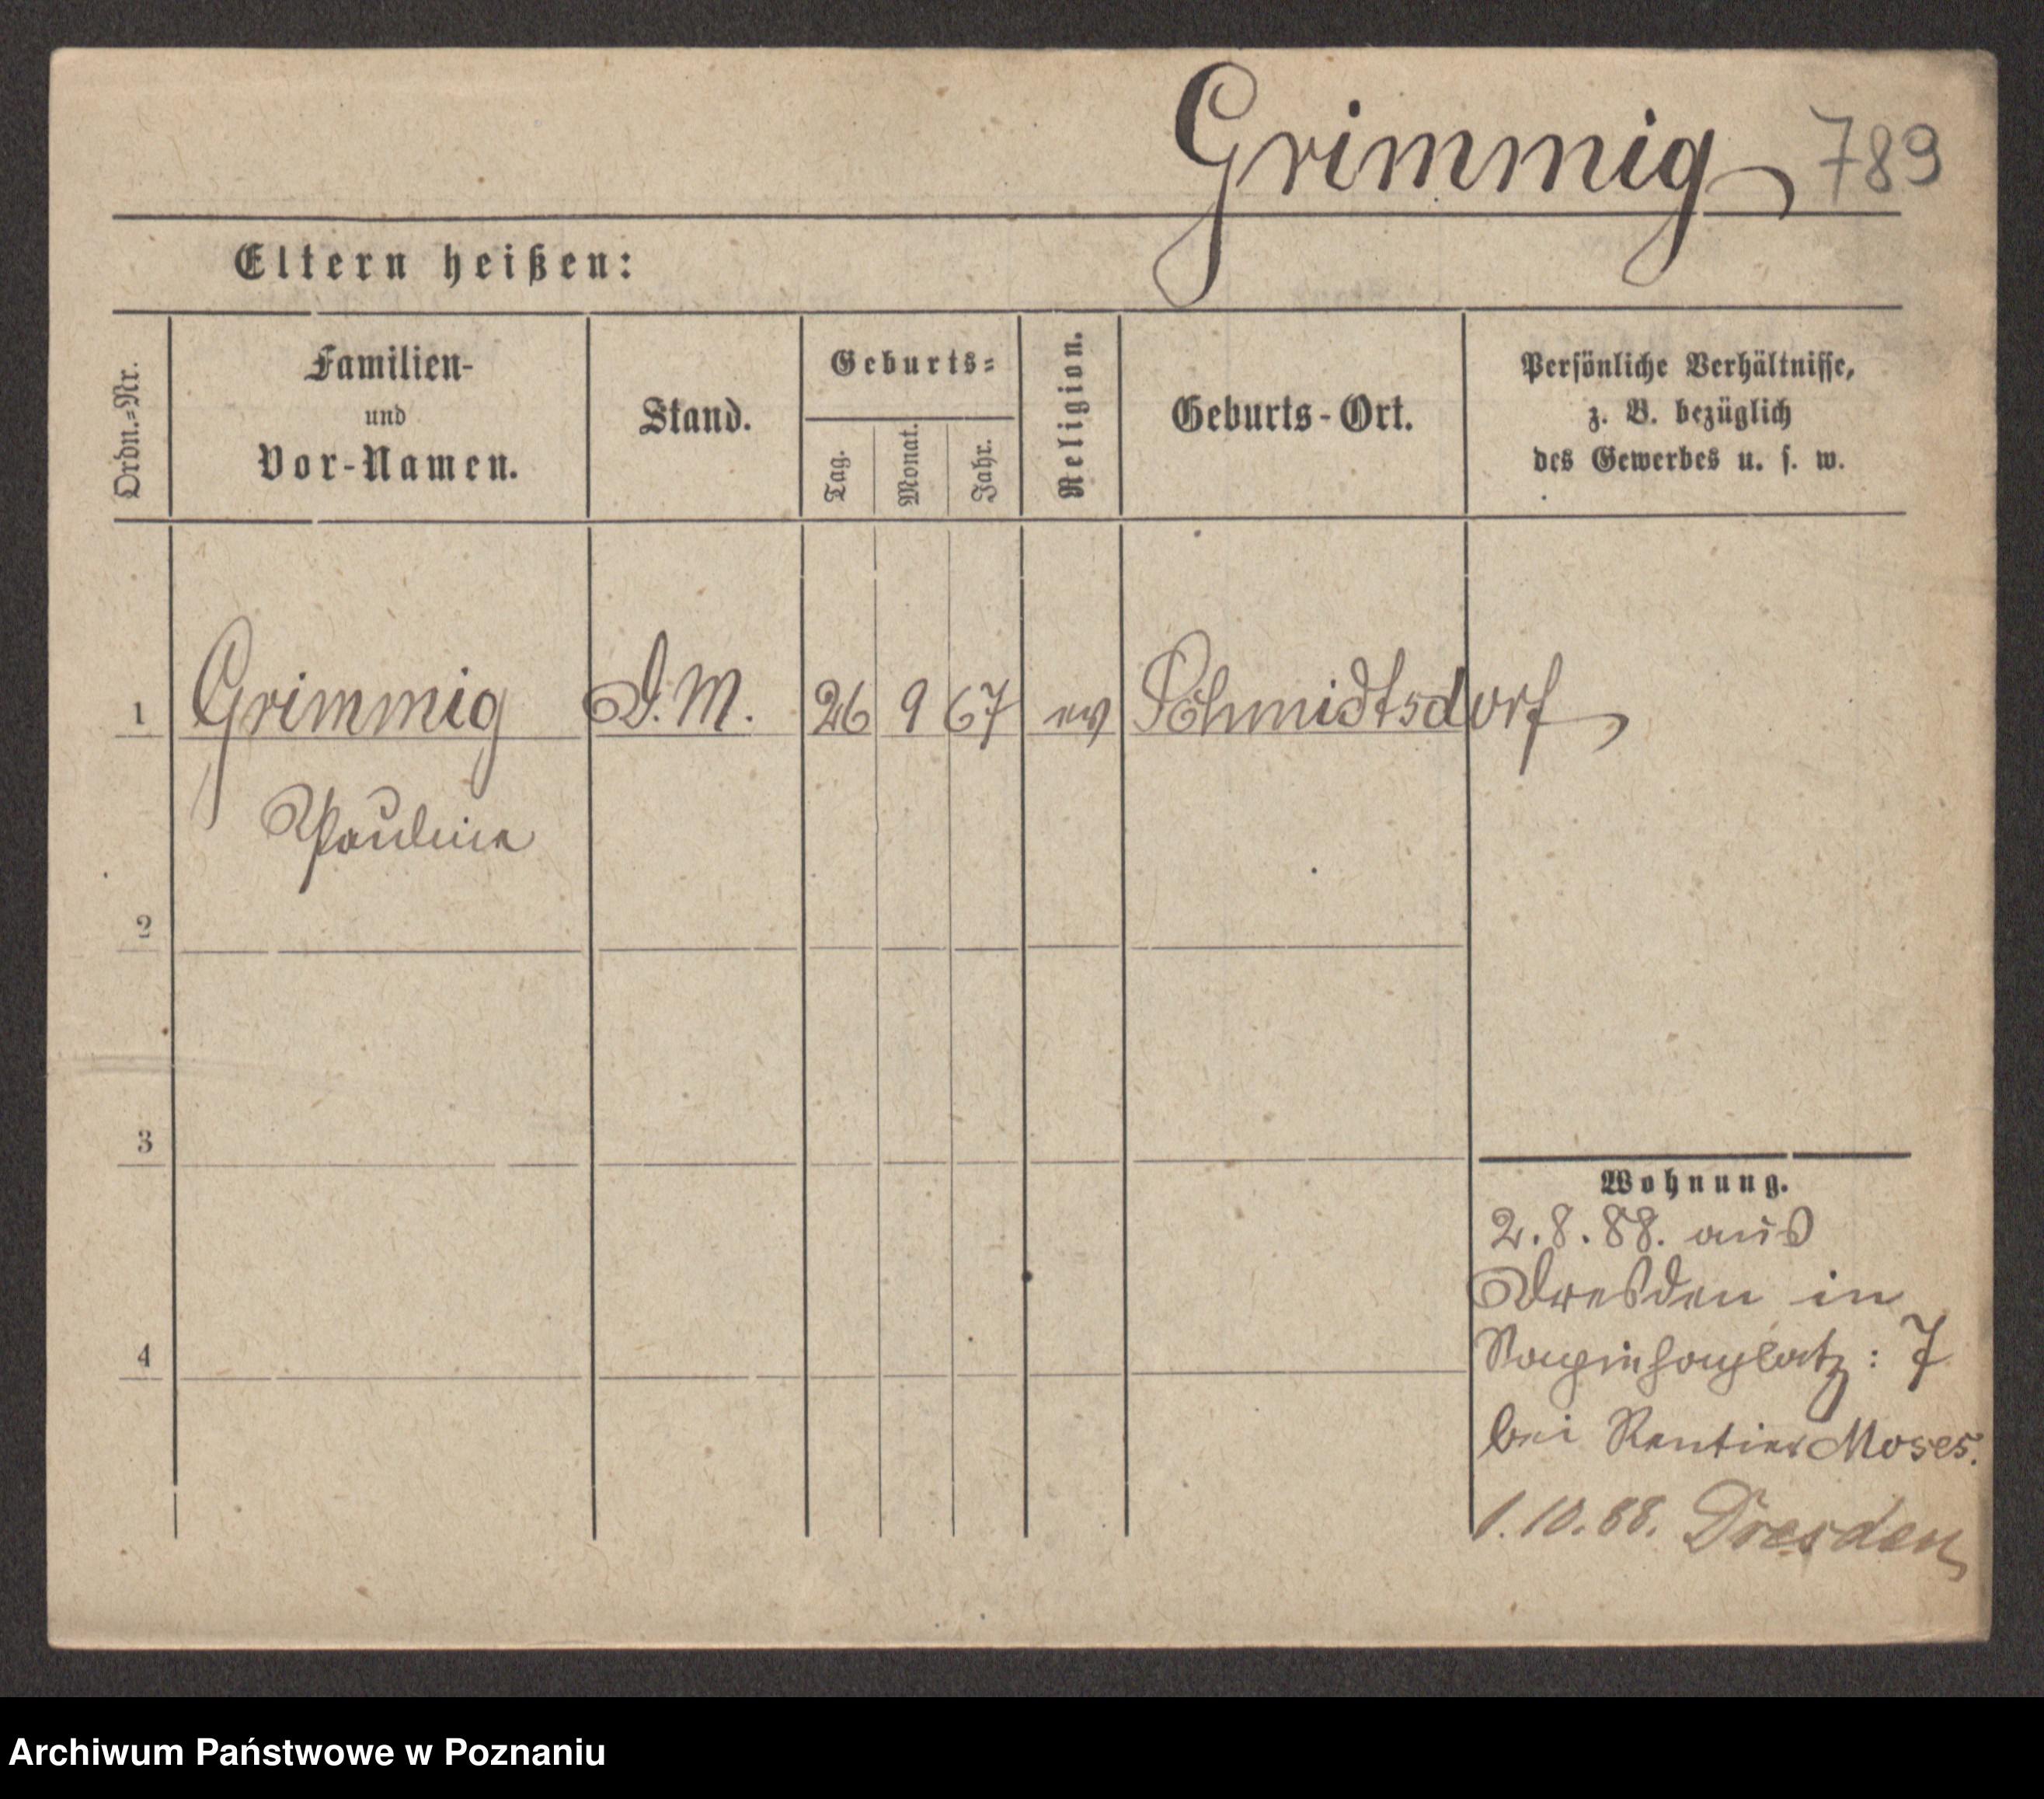 Grimmig 789
Eltern heißen:
Ordn.-Nr.
Familien-
und
Vor-Namen.
Stand.
Geburts-
Tag.
Monat.
Jahr.
Religion.
Geburts-Ort.
Persönliche Verhältnisse,
z. B. bezüglich
des Gewerbes u. s. w.
1 Grimmig D. M. 26 9 67 ev Schmidtsdorf
Pauline
2
3
4
Wohnung.
2.8.88. aus
Dresden in
Sapiehaplatz: 7
bei Rentier Moses.
1.10.88. Dresden
Archiwum Państwowe w Poznaniu